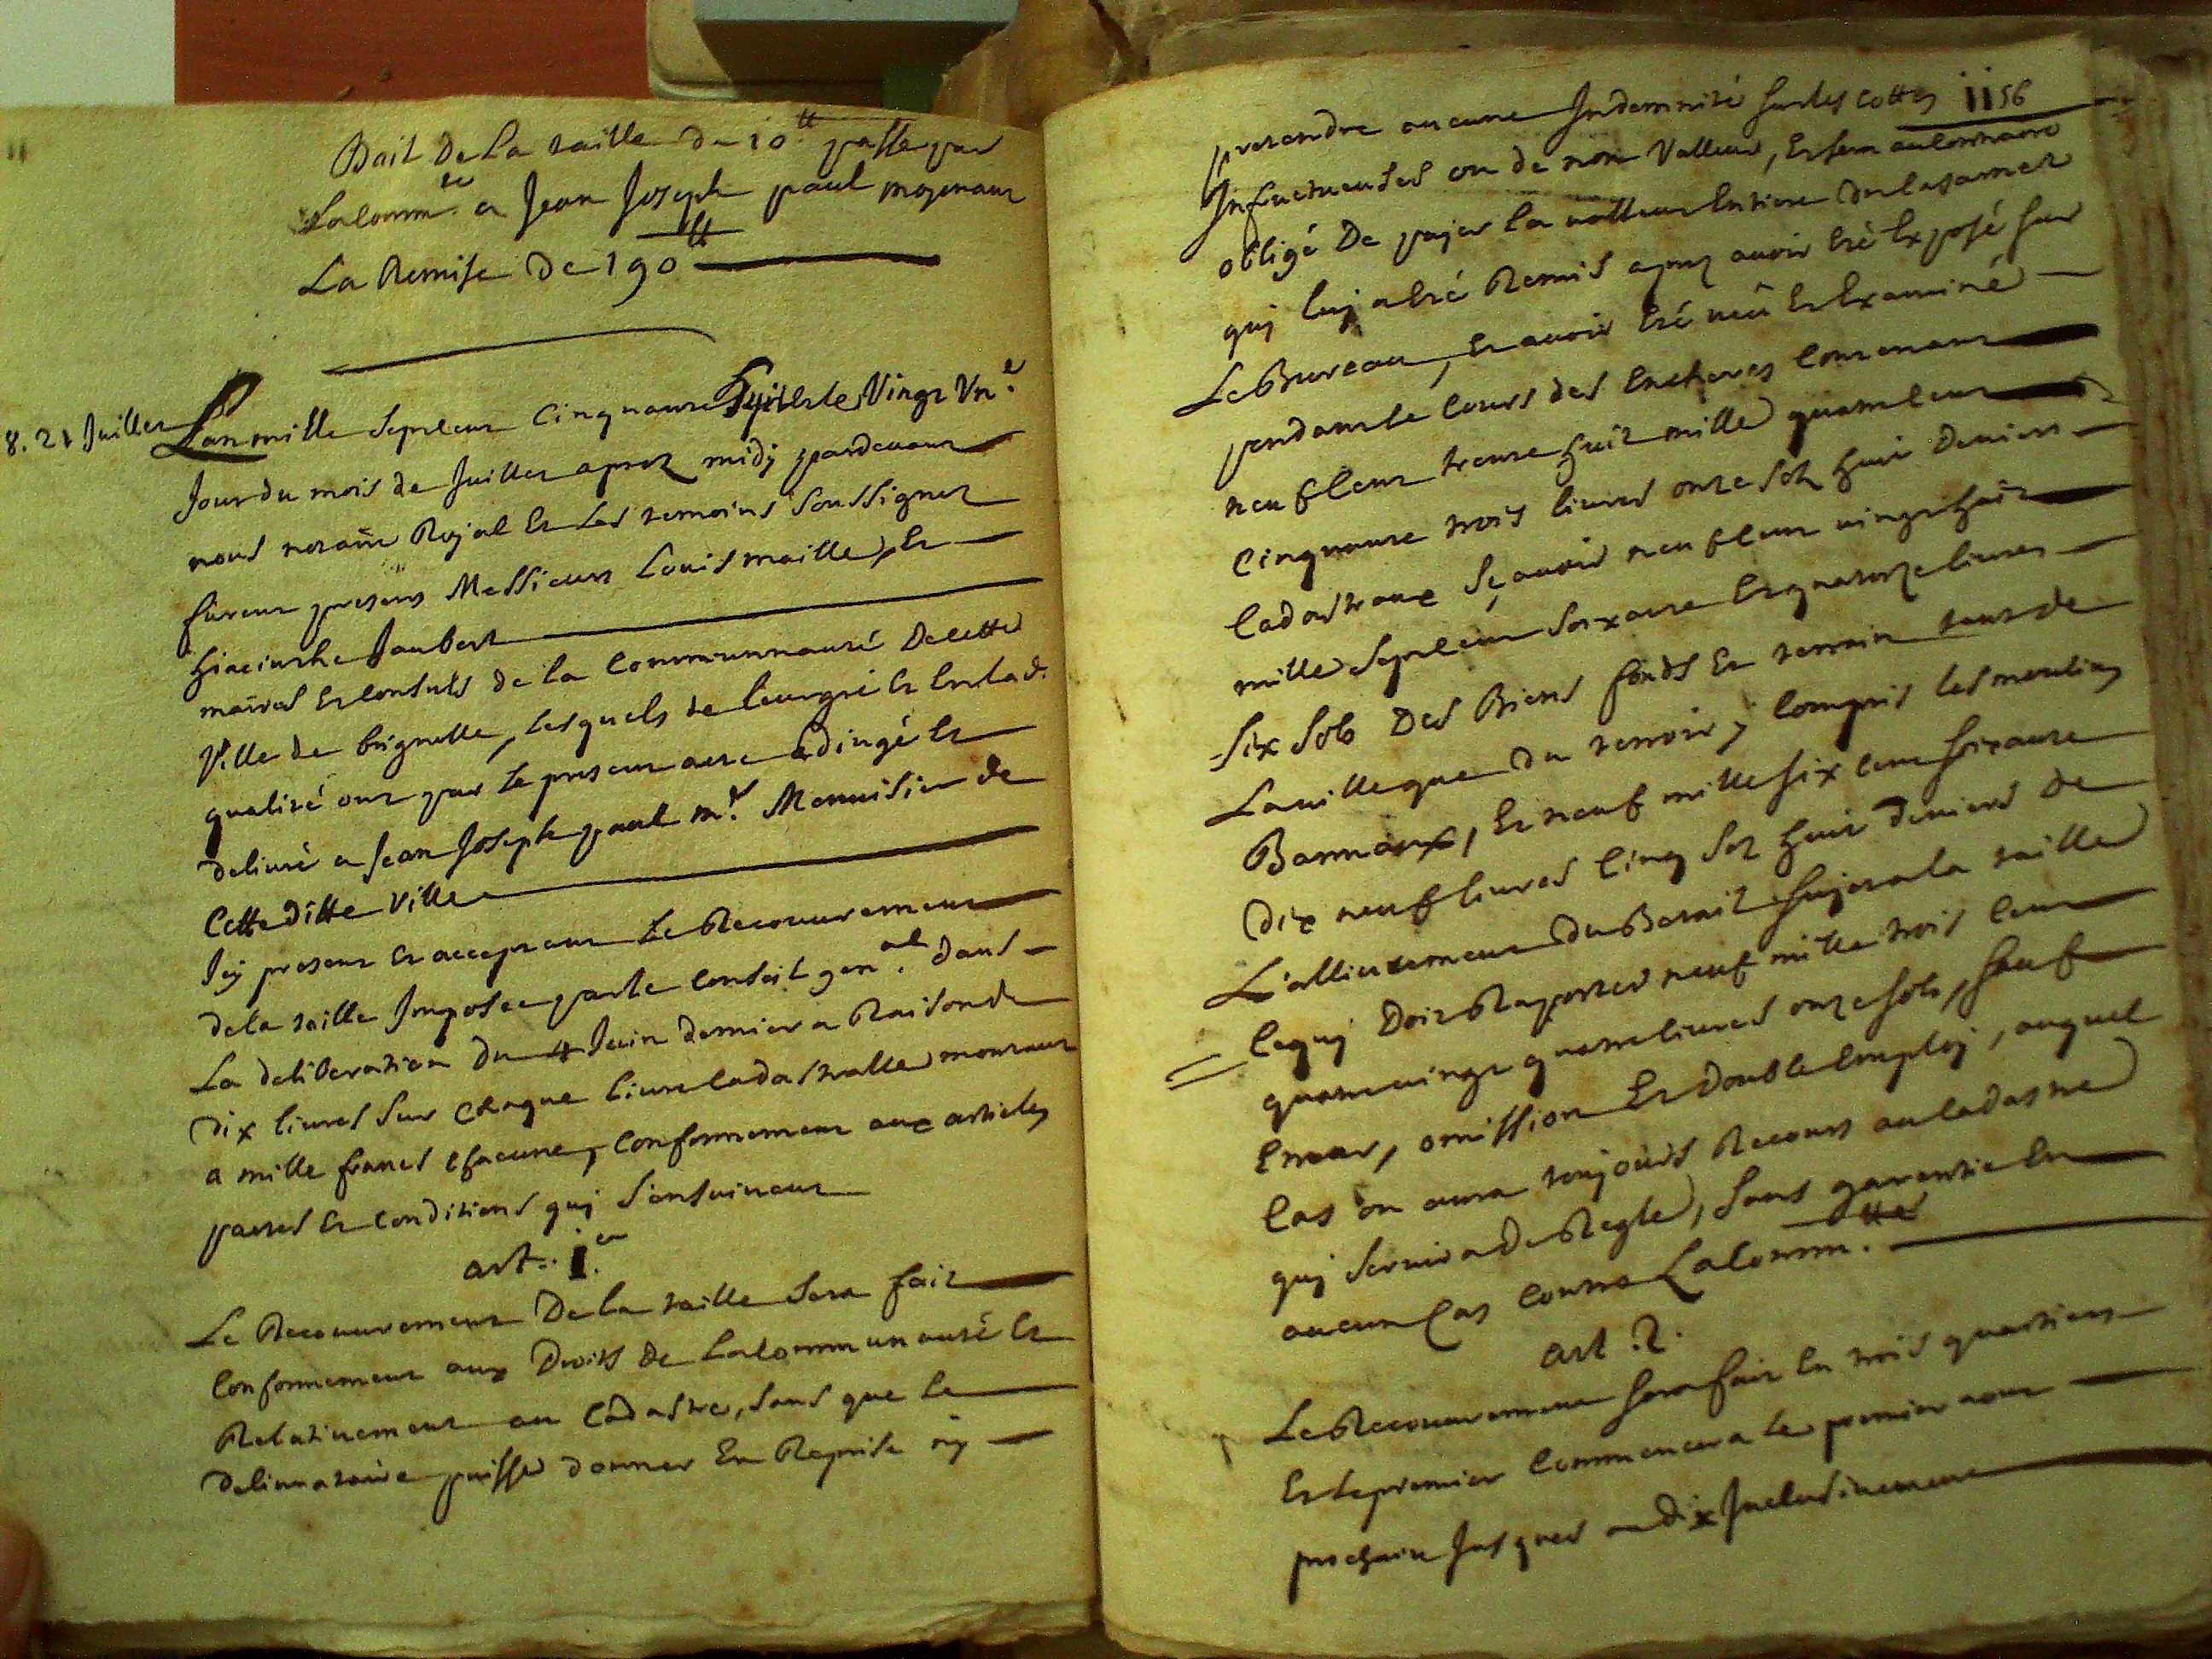 Bail De La taille de 10.tt passé par
La Comm.te a Jean Joseph paul moyenant
La Remise De 190tt
8. 21 Juillet
L'an mille sept cent cinquante huit et le vingt un.e
Jour du mois de Juillet apres midÿ pardevant
nous notaire Royal et Les temoins soussignez
furent presens Messieurs Louis maille, et
hiacinthe Jaubert
maires et consuls de la Communauté De cette
Ville de brignolle, Lesquels de leur gré et en lad.
qualité ont par le present acte Erigé et
delivré a Jean Joseph paul m.e Menuisier de
Cette ditte Ville
Icÿ present et acceptant Le Recouvrement
de la taille Imposée par le Conseil gen.al dans
La deliberation du 4 Juin dernier a Raison de
Dix livres sur chaque livre Cadastralle montant
a mille francs chacune, conformement aux articles
pactes et conditions quÿ s'ensuivent
art. 1.er
Le Recouvrement De la taille sera fait
conformement aux Droits de La Communauté et
Relativement au Cadastre, sans que le
delivrataire puisse donner En Reprise nÿ
1156
pretendre aucune Indemnité sur les cottes
Infructueuses ou de non Valleur, et sera au contraire
obligé De payer la valleur Entiere du Casernet
quÿ luÿ a eté Remis apres avoir Eté Exposé sur
Le Bureau, et avoir Eté veû et Examiné
pendant le cours des Encheres Contenant
neuf cent trente huit mille quatre cent
cinquante trois livres onze sols huit deniers
Cadastraux Sçavoir neuf cent vingt huit
mille sept cent soixante et quatorze livres
six sols Des Biens fonds et terrain tant de
La ville que du terroir, y compris les moulins
Bannaux, et neuf mille six cent soixante
Dix neuf livres cinq sols huit deniers de
L'allivrement du Betail sujet a la taille
Ce quÿ Doit Raporter neuf mille trois cent
quatre vingt quatre livres onze sols, sauf
Erreur, omission et double Employ, auquel
Cas on aura toujours Recours au Cadastre
quÿ servira de Regle, sans garantie En
aucun Cas contre La Comm.tté
art. 2.
Le Recouvrement sera fait En trois quartiers
Et le premier Commencera le premier aout
prochain Jusques au dix Inclusivement